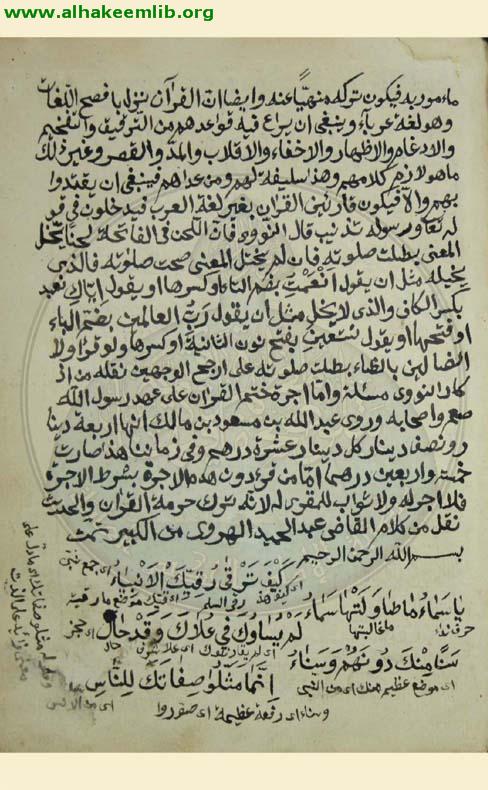 www.alhakeemlib.org
مأمور به فيكون تركه منهيا عنه وايضا ان القرآن نزل بافصح اللغات
وهو لغة عرباء وينبغي ان يراع فيه قواعدهم من الترقيق والتفخيم
والادغام والاظهار والاخفاء والاقلاب والمد والقصر وغير ذلك
ما هو لازم كلامهم وهذا سليقة لهم ومن عداهم فينبغي ان يقتدوا
بهم والا فيكون قارئين القران بغير لغة العرب فيدخلون في قو
له تعا ورسوله تذنيب قال النووي فان اللحن في الفاتحة لحنا يخل
المعنى بطلت صلوته فان لم يختل المعنى صحت صلوته فالذى
يخيله مثل ان يقول أنعمت بضم التاء او كسرها او يقول اياك نعبد
بكسر الكاف والذى لا يخل مثل ان يقول رب العالمين بضم الباء
او فتحها او يقول نستعين بفتح نون الثانية او كسرها ولو قرا ولا
الضالين بالظاء بطلت صلوته على ارجح الوجهين نقله من اذ
كار النووى مسئلة واما اجرة ختم القران على عهد رسول الله
صعم واصحابه وروى عبد الله بن مسعود بن مالك انها اربعة دينا
ر ونصف دينار كل دينار عشرة درهم وفى زماننا هذا صارت
خمسة واربعين درهما امّا من قرء دون هذه الاجرة بشرط الاجرة
فلا اجر له ولا ثواب للمقرى له لانه ترك حرمة القران والحديث
نقل من كلام القاضى عبد الحميد الهروى من الكبير تمت
بسم الله الرحمن الرحيم
كيف ترقى رقيك الانبياء
يا سماء ما طاولتها سماء
حرف نداء
لم يساووك في علاك وقد حال
سنا منك دونهم وسناء
اى موضع عظيم منك اى من النبى
انما مثلوا صفاتك للناس
وسناء اى رفعة عظيمة اى صوروا